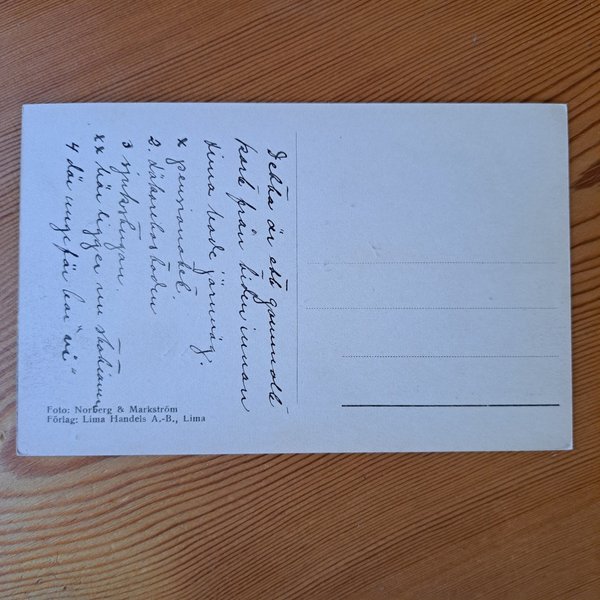 Detta är ett gammalt
kort från tiden innan
Lima hade järnväg.
x pensionatet.
2. Läkarbostaden
3 sjukstugan.
xx här ligger nu
4 där ungefär bor "vi"
Foto: Norberg & Markström
Förlag: Lima Handels A.-B., Lima